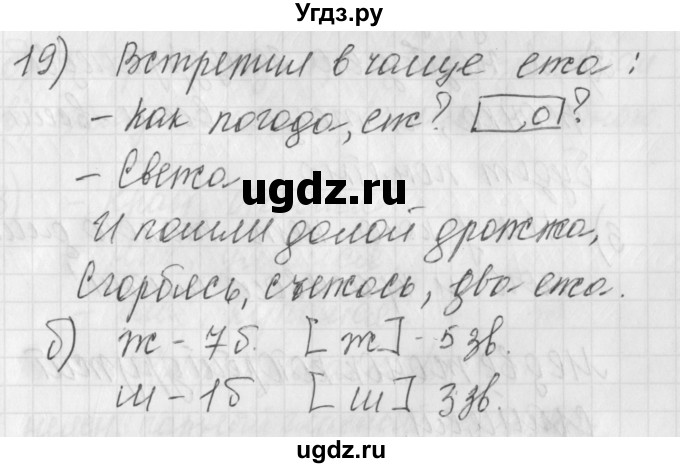 Угдз.ру
19) Встретил в чаще ежа:
– Как погода, еж? [ ,о]?
– Свежа
ugdz.ru
И пошли домой дрожжа,
Сгорбясь, съежась, два ежа.
б) ж – 7б. [ж] – 5 зв.
ш – 1б [ш] 3 зв.
ugdz.ru